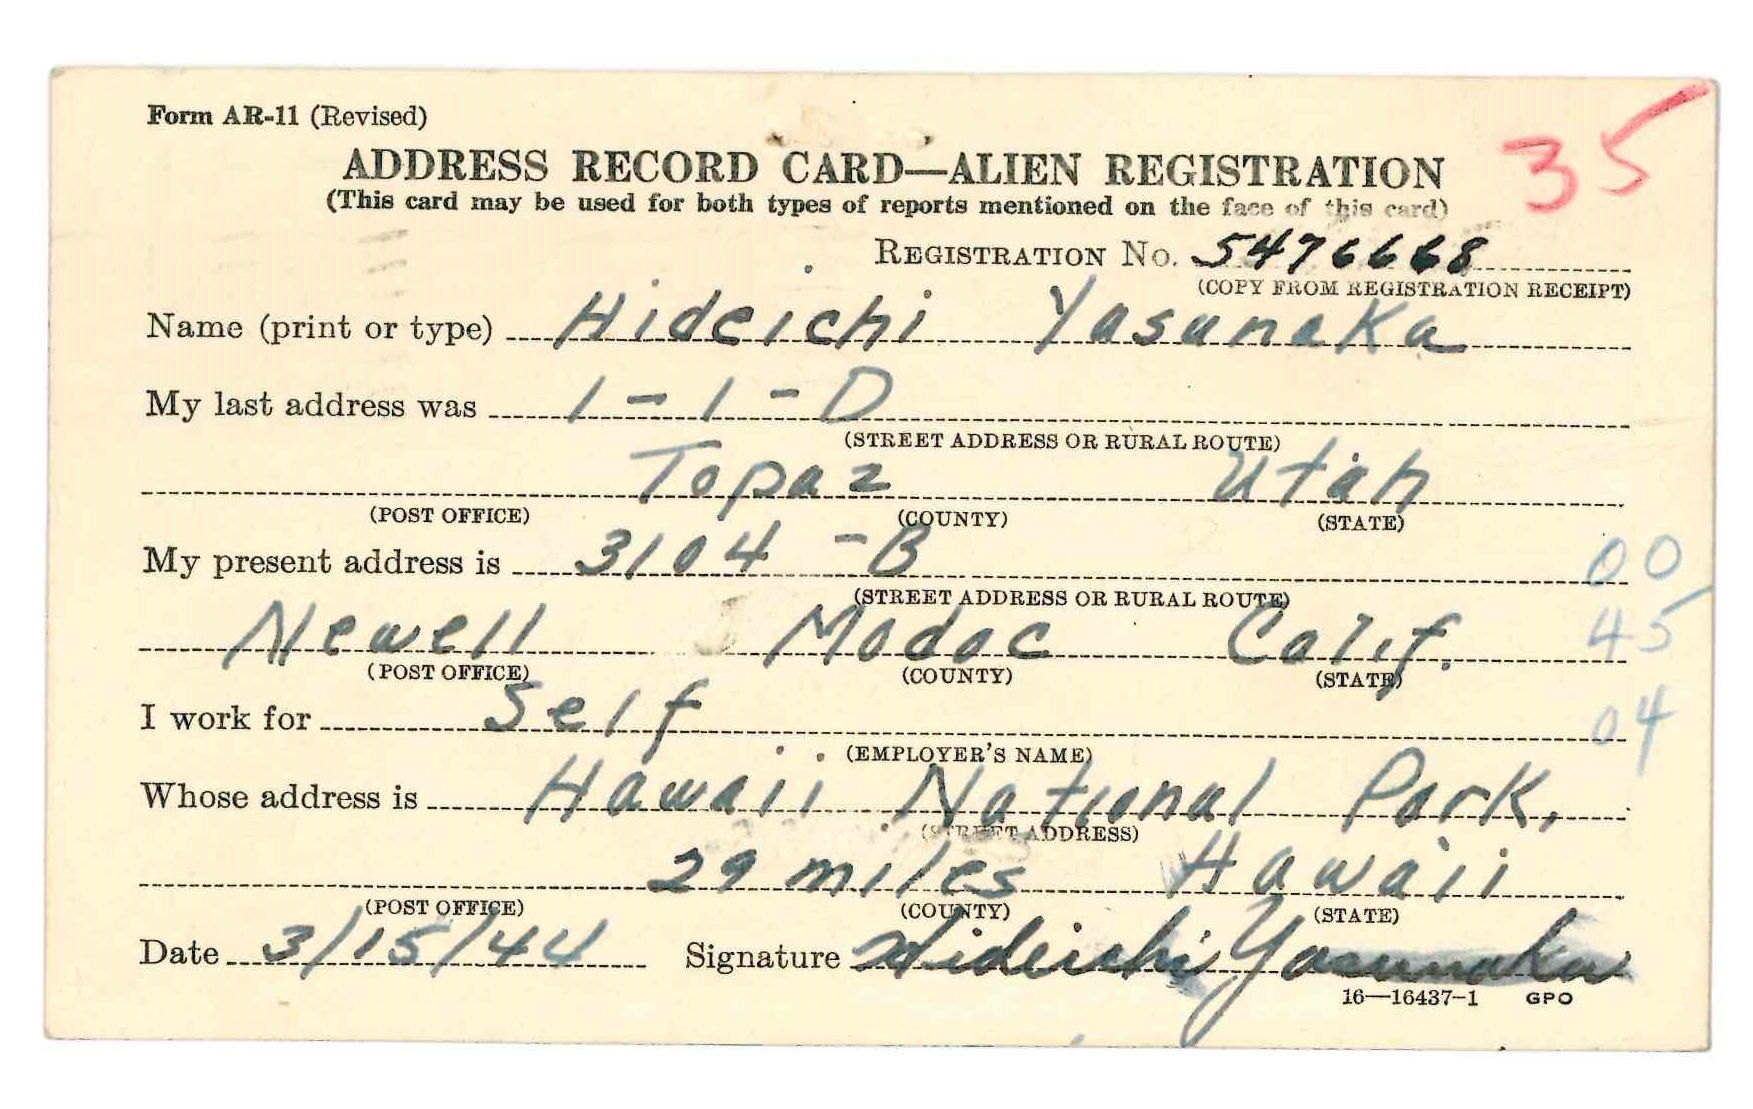 Form AR-11 (Revised)
35
ADDRESS RECORD CARD—ALIEN REGISTRATION
(This card may be used for both types of reports mentioned on the face of this card)
REGISTRATION No. 5476668
(COPY FROM REGISTRATION RECEIPT)
Name (print or type) Hideichi Yasunaka
My last address was 1-1-D
(STREET ADDRESS OR RURAL ROUTE)
Topaz Utah
(POST OFFICE) (COUNTY) (STATE)
My present address is 3104-B 00
(STREET ADDRESS OR RURAL ROUTE)
Newell Modoc Calif. 45
(POST OFFICE) (COUNTY) (STATE)
I work for Self 04
(EMPLOYER'S NAME)
Whose address is Hawaii National Park,
(STREET ADDRESS)
29 miles Hawaii
(POST OFFICE) (COUNTY) (STATE)
Date 3/15/44 Signature Hideichi Yasunaka
16—16437-1 GPO